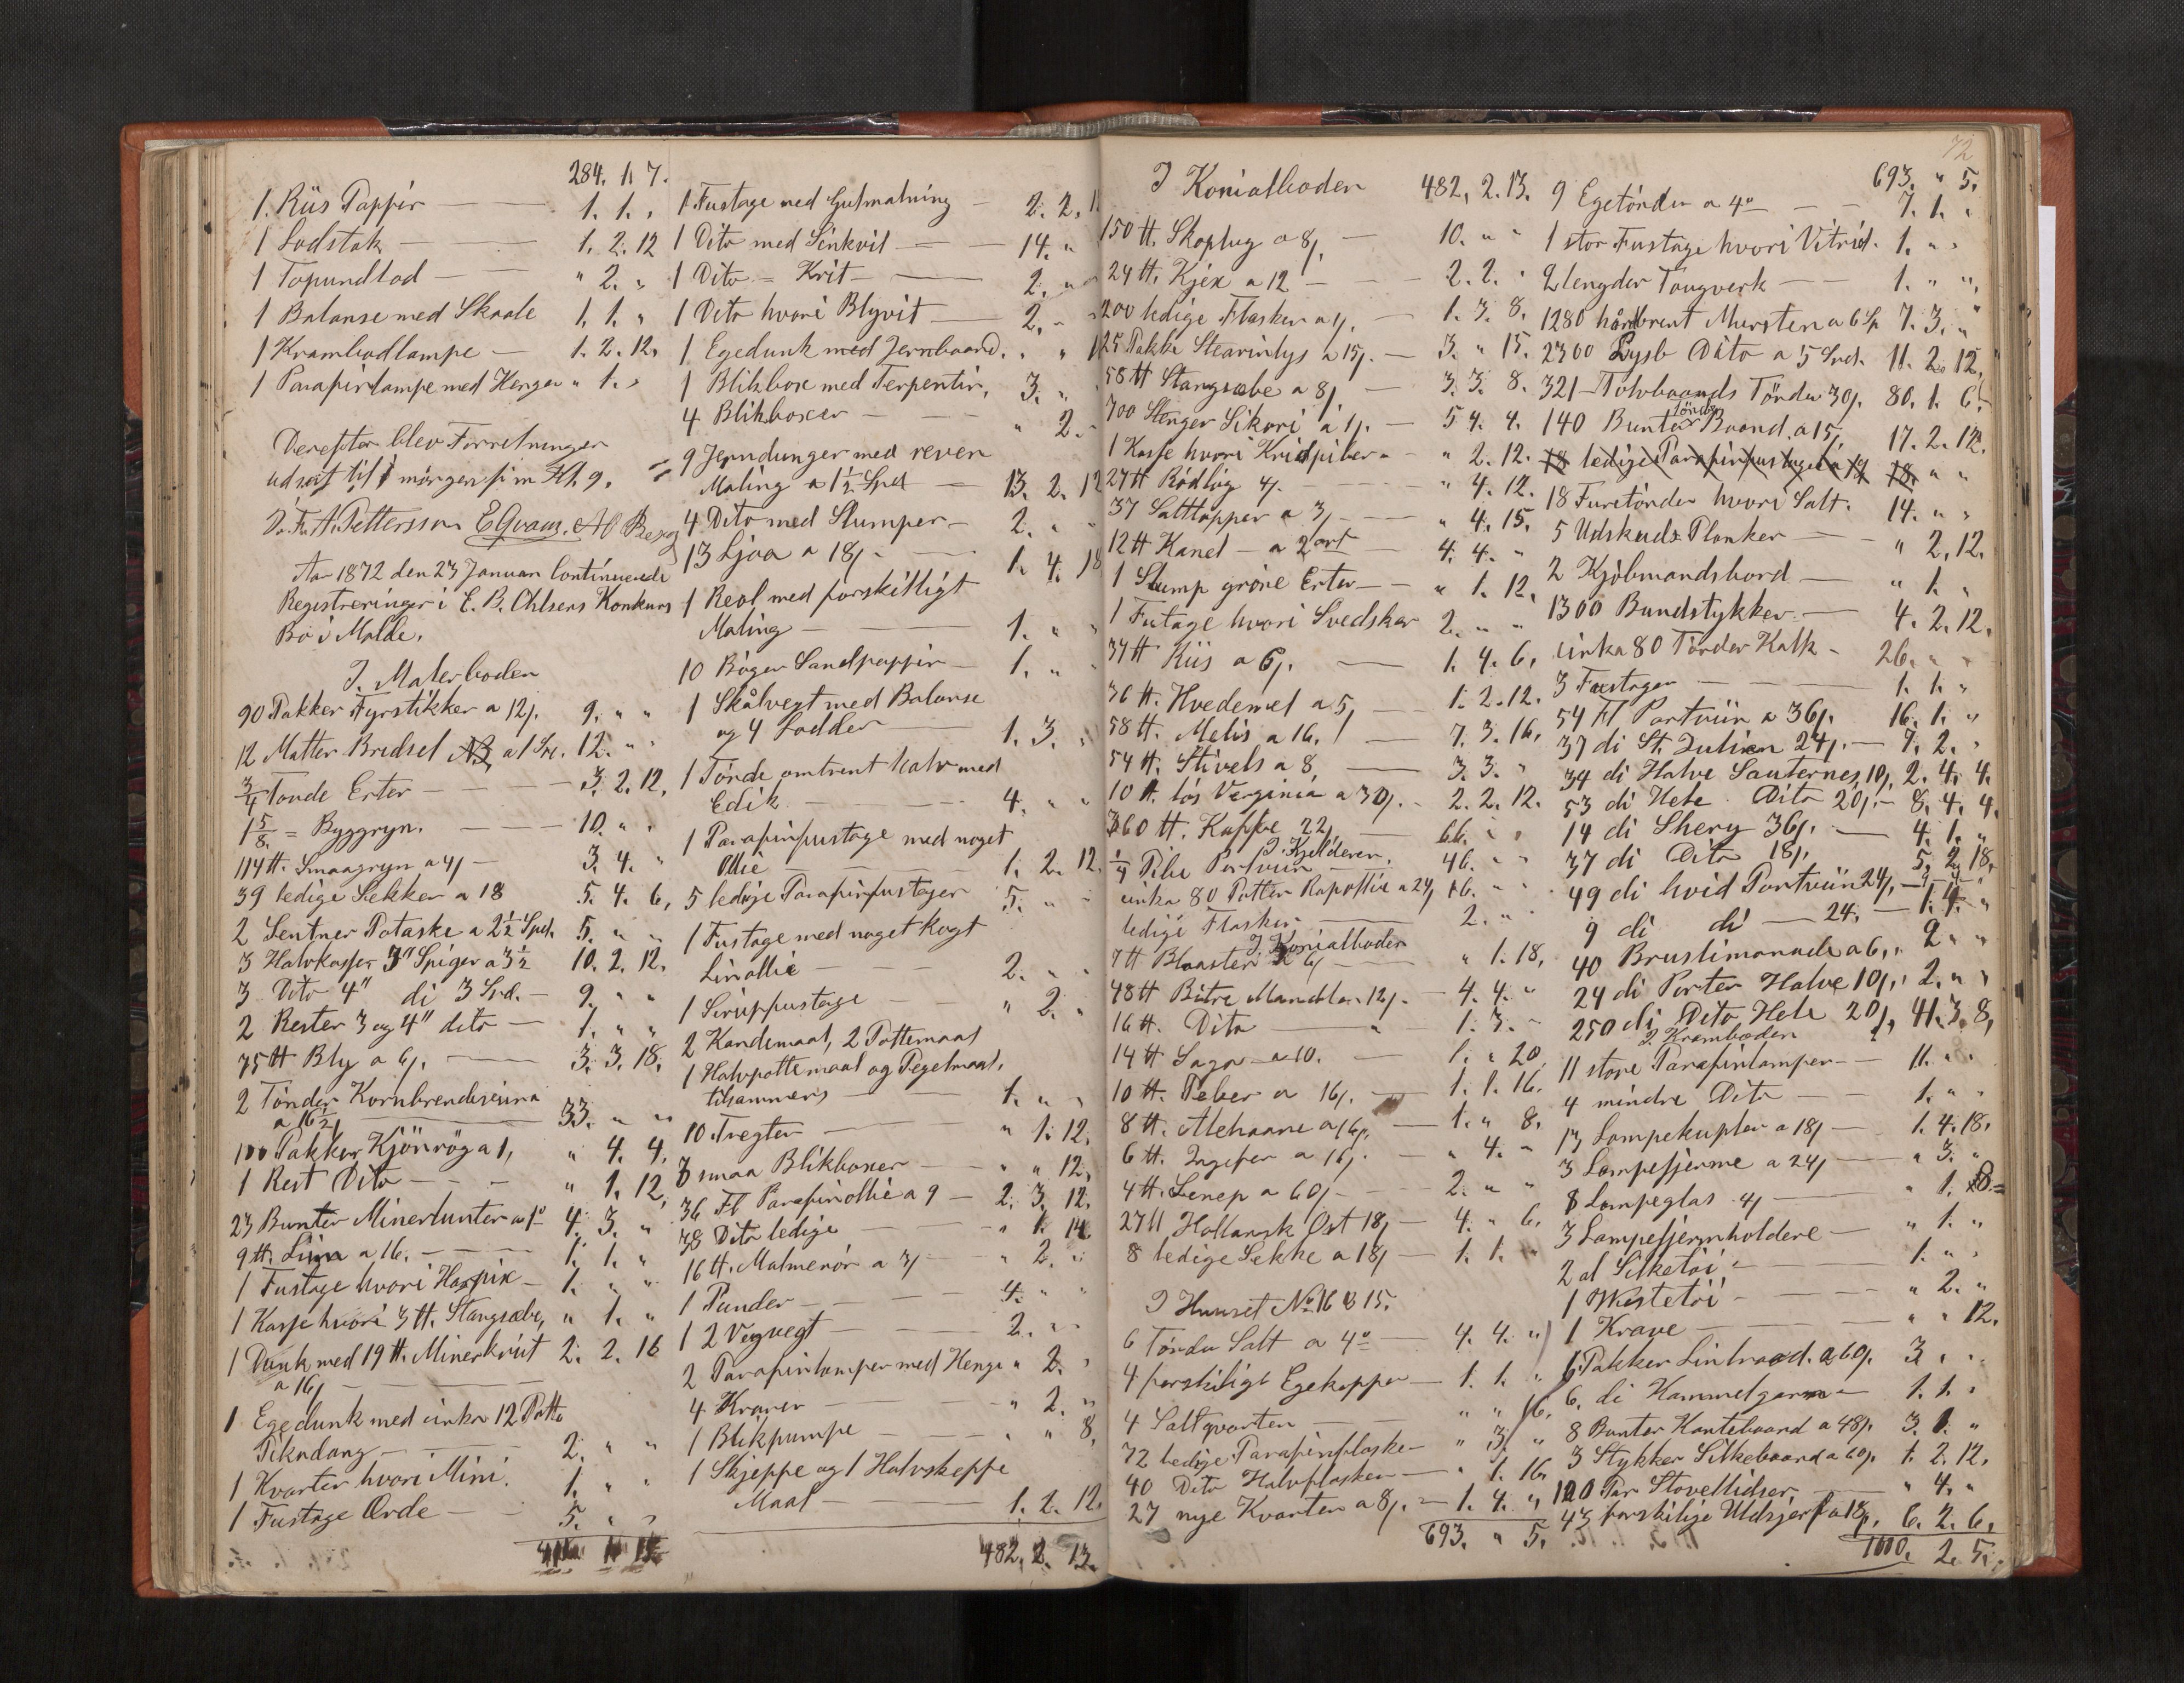 284. 1. 7.
1. Riis Pappir — 1. 1. "
1 Lodstok — 1. 2. 12
1 Topundlod — " 2. "
1 Balanse med Skaale 1. 1. "
1 Krambodlampe — 1. 2. 12.
1 Parafinlampe med Henger " 1. "
Derefter blev Forretninger
udsat til i mørgen fm Kl. 9.
Fr. A. Pettersson E Qvam.
Aar 1872 den 23 Januar Continuerede
Registreringer i E. B. Ohlsens Konkurs
Bo i Molde.
I. Malerboden
90 Pakker Fyrstikker a 12/. 9. " "
12 Matter Bredsel a 1 Spd. 12. " "
3/4 Tønde Erter — 3. 2. 12.
1 5/8 = Byggryn. — 10. " "
114 ℔. Smaagryn a 4/ — 3. 4. "
39 ledige Sekker a 18 5. 4. 6,
2 Sentner Potaske a 2 1/2 Spd. 5. " "
3 Halvkasser 3" Spiger a 3 1/2 10. 2. 12.
3 Dito 4" di 3 Spd. — 9. " "
2 Rester 3 og 4" dito — 1. " "
75 ℔ Bly a 6/. — 3. 3. 18.
2 Tønder Kornbrendeviin
a 16 1/2 — 33. " "
100 Pakker Kjönrög a 1, " 4. 4.
1 Rest Dito — " 1. 12,
23 Bunter Minerlunter a 1° 4. 3. "
9 ℔. Liim a 16. — 1. 1. "
1 Fustage hvori Harpix — 1. " "
1 Kasse hvori 3 ℔. Stangsæbe, " 1. "
1 Dunk med 19 ℔. Minerkrut 2. 2. 16
a 16/ —
1 Egedunk med cirka 12 Potte
— 2. " "
1 Kvarter hvori Mini. 1. " "
1 Fustage Orde — 5. " "
1 Fustage med Gulmalning — 2. 2. 1
1 Dito med Sinkvit — 14. "
1 Dito = Krit — 2. "
1 Dito hvori Blyvit — 2. "
1 Egedunk med Jernbaand. " "
1 Blikboxe med Terpentin, 3. "
4 Blikboxer — " 2. "
9 Jerndunger med reven
Maling a 1 1/2 Spd — 13. 2. 12
4 Dito med Slumper — 2. " "
13 Ljaa a 18/. — 1. 4. 18
1 Reol med forskjelligt
Maling — 1. " "
10 Bøger Sandpappir — 1. " "
1 Skålvegt med Balanse
og 4 Lodder — 1. 3. "
1 Tønde omtrent halv med
Edik. — 4. " "
1 Parafinfustage med noget
Ollie — 1. 2. 12.
5 ledige Parafinfustager 5. " "
1 Fustage med noget Kogt
Linollie — 2. " "
1 Siripfustage — " 2. "
2 Kandemaal, 2 Pottemaal
1 Halvpottemaal og Pegelmaal,
tilsammens — 1. " "
10 Tregter — " 1. 12.
8 smaa Blikboxer — " " 12,
36 Fl Parafinollie a 9 — 2. 3. 12.
38 Dito ledige — " 1. 14
16 ℔. Malmerör a 3/ — " 2. "
1 Punder — 4. " "
1 2 Vegvegt — 2. " "
2 Parafinlamper med Henge " 2. "
4 Kraner — " 2. "
1 Blikpumpe — " " 8,
1 Skjeppe og 1 Halvskeppe
Maal — 1. 2. 12.
482. 2. 13.
I Konialboden 482, 2. 13.
150 ℔. Skoplug a 8/. — 10. " "
24 ℔. Kjex a 12 — 2. 2. "
200 ledige Flasker a 1/. — 1. 3. 8.
125 Pakke Stearinlys a 15/. — 3. " 15.
58 ℔ Stangsæbe a 8/ — 3. 3. 8.
700 Stenger Sikori a 1/. — 5 4. 4.
1 Kasse hvori Kridpiber — " 2. 12.
27 ℔ Rödlög 4/. — " 4. 12.
37 Saltlapper a 3/ — " 4. 15.
12 ℔ Kanel — a 2 ort 4. 4. "
1 Slump gröne Erter — " 1. 12,
1 Futage hvori Svedsker 2. " "
37 ℔ Riis a 6/. — 1. 4. 6,
36 ℔. Hvedemel a 5, — 1. 2. 12.
58 ℔. Melis a 16. — 7. 3. 16,
54 ℔. Stivels a 8, — 3. 3. "
10 ℔. lös Verginia a 30/. — 2. 2. 12.
360 ℔. Kaffe 22/ — 66. " "
I Kjelderen.
1/4 Pibe Portviin — 46. " "
cirka 80 Potter Rapsollie a 24/ 16. " "
ledige Flasker — 2. " "
I Konialboden
7 ℔ Blaasten a 6/ — " 1. 18,
48 ℔ Bitre Mandler 12/. — 4. 4. "
16 ℔. Dito — " 1. 3. "
14 ℔ Sago — a 10. — 1. " 20
10 ℔. Peber a 16/. — 1. 1. 16.
8 ℔. Alehaane a 16/. — 1. " 8.
6 ℔. Ingefer a 16/. — " 4. "
4 ℔. Senep a 60/ — 2. " "
27 ℔ Hollansk Ost 18/ — 4. " 6.
8 ledige Sekke a 18/ — 1. 1. "
I Huuset No 16 B 15.
6 Tønder Salt a 4° — 4. 4. "
4 forskilige Egekopper — 1. 1. "
4 Saltqvarten — " " 16.
72 ledige Parafinflaske — " 3. "
40 Dito Halvflasker — " 1. 16,
27 nye Kvarter a 8/. — 1. 4. "
693. " 5.
72
693. " 5.
9 Egetönder a 4° — 7. 1. "
1 stor Fustage hvori Vitriol. 1. " "
2 lengder Tougverk — 1. " "
1280 hårdbrent Mursten a 6 Sp 7. 3. "
2300 Lysb Dito a 5 Spd. 11. 2. 12,
321 — Tolvbaands Tönder 30/. 80. 1. 6.
140 Bunter Tönde Baand. a 15/. 17. 2. 12.
18 ledige Parafinfustager a 1/2 18. " "
18 Furetönder hvori Salt. 14. " "
5 Udskuds Planker — " 2, 12.
2 Kjöbmandsbord — " 1. "
1300 Bundstykker. — 4. 2. 12.
cirka 80 Tönder Kalk — 26. " "
3 Fustager — 1. 1. "
54 Fl Portviin a 36/. 16. 1. "
37 di St. Julien 24/. — 7. 2. "
34 di Halve Sauternes, 10/. 2. 4. 4.
53 di Hele Dito 20/. — 8. 4. 4.
14 di Shery 36/. — 4. 1. "
37 di Dito 18/. 5. 2. 18,
49 di hvid Portviin 24/. — 9. 4. "
9 di di — 24. — 1. 4. "
40 Bruslimonade a 6, " 2. " "
24 di Porter Halve 10/. " 2. " "
250 di Dito Hele 20/. 41. 3. 8,
I Kramboden
11 store Parafinlamper — 11. " "
4 mindre Dito — 1. " "
13 Lampekupler a 18/ — 1. 4. 18,
3 Lampeskjerme a 24/ — " 3. "
8 Lampeglas 4/ — " 1. 8.
3 Lampeskjermholdere — " 1. "
2 al Silketöi — 1. " "
1 Westetöi — " 2. "
1 Krave — " " 12.
6 Pakker Lintraad. a 60/. 3. " "
6. di Hammelgarn — 1. 1. "
8 Bunter Kantebaand a 48/. 3. 1. "
3 Stykker Silkebaand a 60/. 1. 2. 12.
100 Par Stovellidser — " 4. "
43 forskilige Uldsjerf a 18/. 6. 2. 6.
1000. 2. 5.